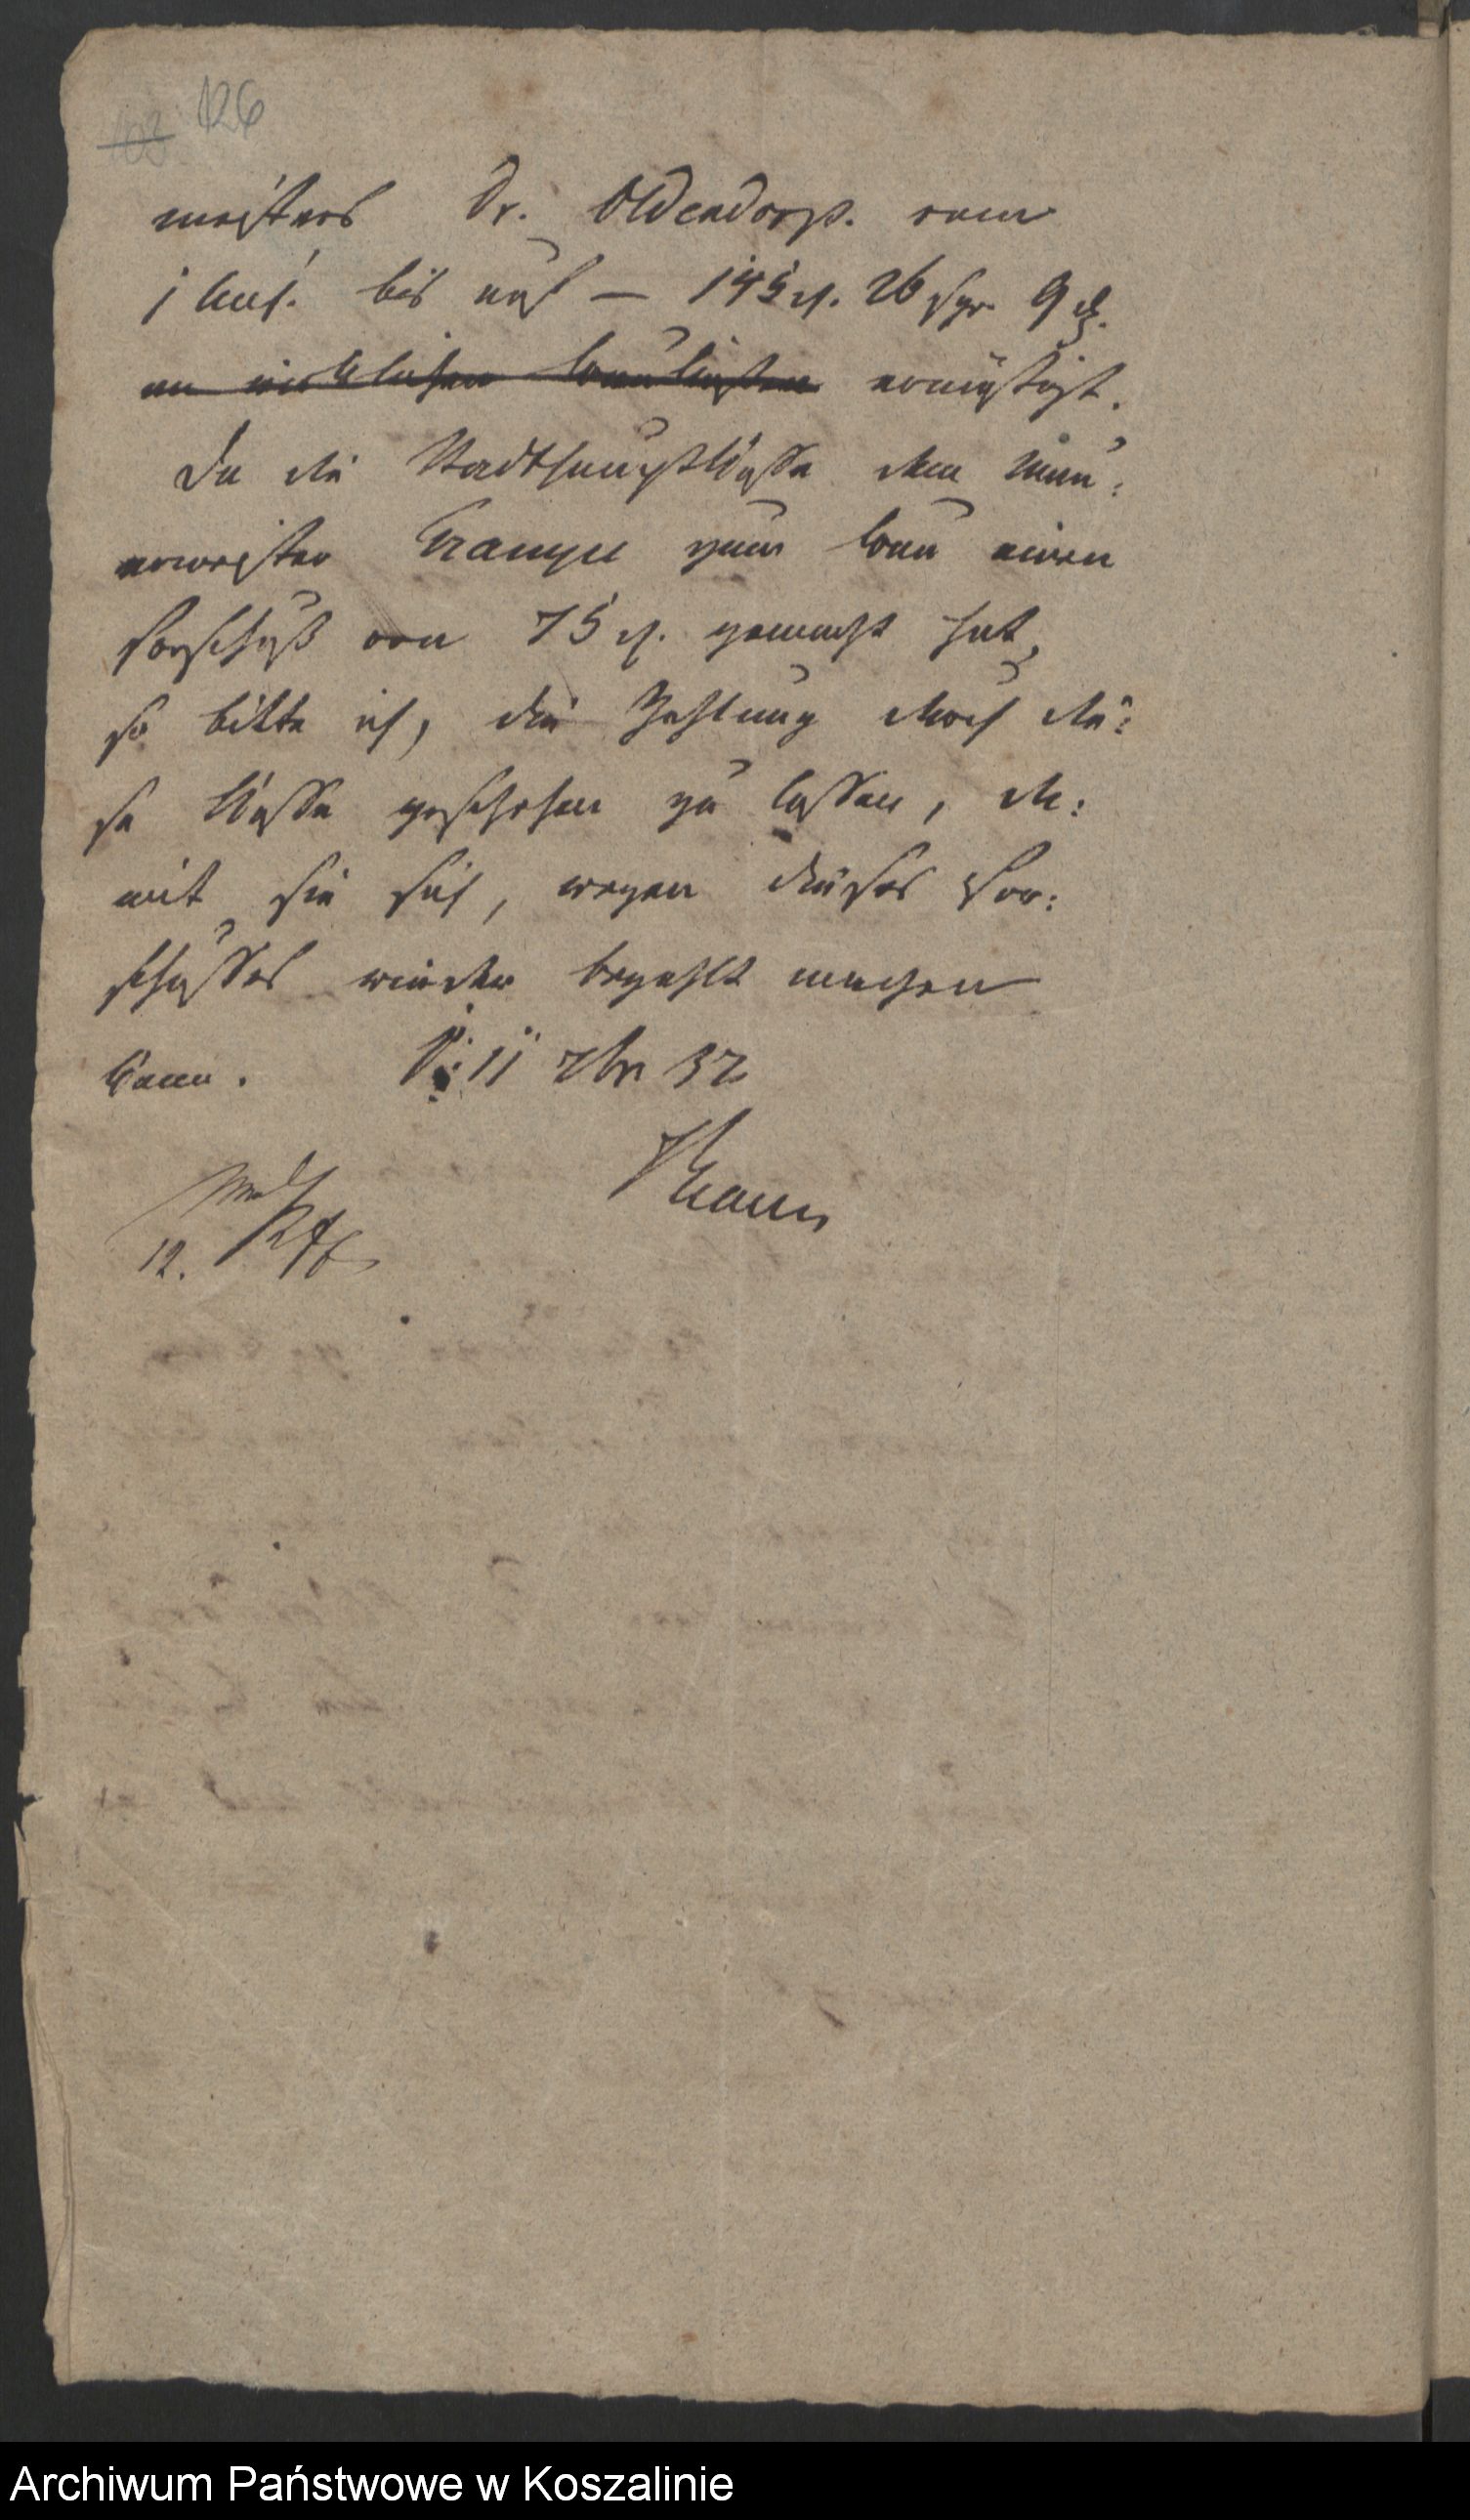 103 126
meisters Dr. Oldendorp. vom
bis auf — 145 rl. 26 sgr. 9 d.
an wirklichen Baukosten ermäßigt.
Da die Stadthauptkasse dem Mau:
ermeister Trampe zum Bau einen
Vorschuß von 75 rl. gemacht hat,
so bitte ich, die Zahlung durch die:
se Kasse geschehen zu lassen, da:
mit sie sich, wegen dieses Vor:
schusses wieder bezahlt machen
kann. 11 7br 37
12.
Archiwum Państwowe w Koszalinie